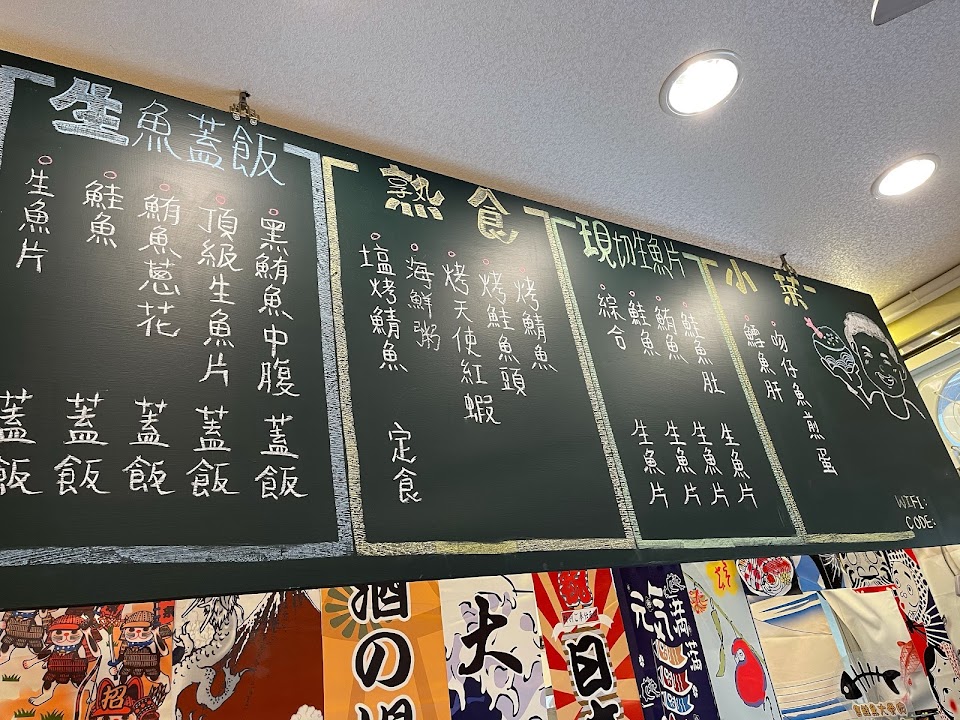 生魚蓋飯
黑鮪魚中腹蓋飯
頂級生魚片蓋飯
鮪魚蔥花蓋飯
鮭魚蓋飯
生魚片蓋飯
熟食
烤鯖魚
烤鮭魚頭
烤天使紅蝦
海鮮粥
塩烤鯖魚定食
現切生魚片
鮭魚肚生魚片
鮪魚生魚片
鮭魚生魚片
綜合生魚片
小菜
吻仔魚煎蛋
鱈魚肝
WIFI:
CODE:
酒の場
大
祝
元気
招